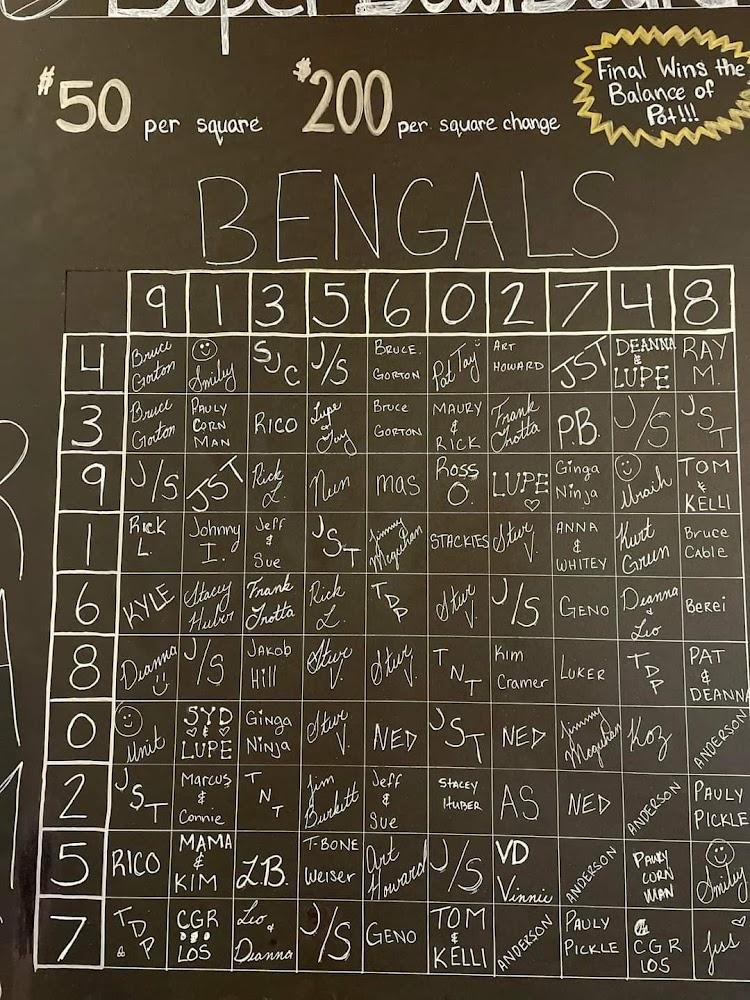 $50 per square $200 per square change
Final Wins the
Balance of
Pot!!!
BENGALS
9 1 3 5 6 0 2 7 4 8
4 Bruce Gorton Smiley SJC J/S BRUCE. GORTON Pat Tay ART HOWARD JST DEANNA & LUPE RAY M.
3 Bruce Gorton PAULY CORN MAN RICO Lupe & Jay Bruce GORTON MAURY & RICK Frank Trotta P.B. J/S JST
9 J/S JST Rick L. Nun mas ROSS O. LUPE Ginga Ninja TOM & KELLI
1 RICK L. Johnny I. Jeff & Sue JST Jimmy Mcguhan STACKIES Stur V. ANNA & WHITEY Kurt Grun Bruce Cable
6 KYLE Stacey Huber Frank Trotta Rick L. TDP Stur V. J/S GENO Deanna & Lio BEREI
8 Dianna J/S JAKOB Hill Stur V. Stur V. TNT Kim Cramer LUKER TDP PAT & DEANNA
0 Unit SYD & LUPE Ginga Ninja Stur V. NED JST NED Jimmy Mcguhan Koz ANDERSON
2 JST Marcus & Connie TNT Jim Burkett Jeff & Sue STACEY HUBER AS NED ANDERSON PAULY PICKLE
5 RICO MAMA & KIM L.B. T-BONE Weiser Art Howard J/S VD Vinnie ANDERSON PAULY CORN MAN Smiley
7 TDP CGR LOS Lio & Dianna J/S GENO TOM & KELLI ANDERSON PAULY PICKLE CGR LOS Jess